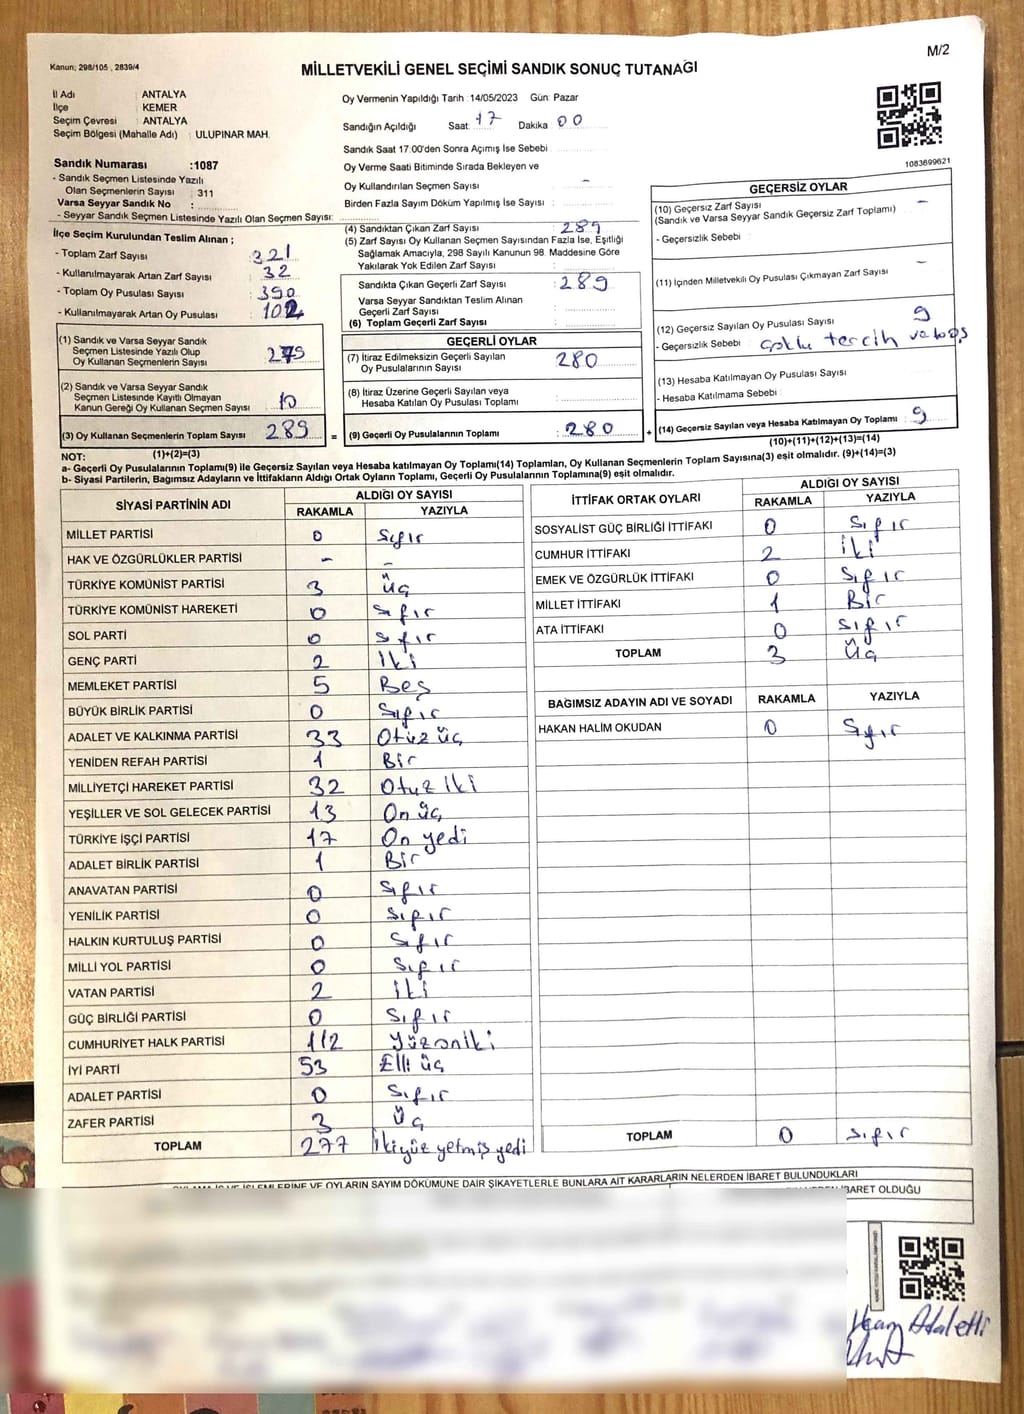 M/2
Kanun; 298/105 , 2839/4
MİLLETVEKİLİ GENEL SEÇİMİ SANDIK SONUÇ TUTANAĞI
İl Adı : ANTALYA
İlçe : KEMER
Seçim Çevresi : ANTALYA
Seçim Bölgesi (Mahalle Adı) : ULUPINAR MAH.
Sandık Numarası :1087
- Sandık Seçmen Listesinde Yazılı
Olan Seçmenlerin Sayısı : 311
Varsa Seyyar Sandık No :
- Seyyar Sandık Seçmen Listesinde Yazılı Olan Seçmen Sayısı:
Oy Vermenin Yapıldığı Tarih :14/05/2023 Gün: Pazar
Sandığın Açıldığı Saat: 17 Dakika 00
Sandık Saat 17:00'den Sonra Açılmış İse Sebebi :
Oy Verme Saati Bitiminde Sırada Bekleyen ve
Oy Kullandırılan Seçmen Sayısı : -
Birden Fazla Sayım Döküm Yapılmış İse Sayısı :
1083699621
İlçe Seçim Kurulundan Teslim Alınan ;
- Toplam Zarf Sayısı : 321
- Kullanılmayarak Artan Zarf Sayısı : 32
- Toplam Oy Pusulası Sayısı : 390
- Kullanılmayarak Artan Oy Pusulası : 102
(1) Sandık ve Varsa Seyyar Sandık
Seçmen Listesinde Yazılı Olup
Oy Kullanan Seçmenlerin Sayısı : 279
(2) Sandık ve Varsa Seyyar Sandık
Seçmen Listesinde Kayıtlı Olmayan
Kanun Gereği Oy Kullanan Seçmen Sayısı : 10
(3) Oy Kullanan Seçmenlerin Toplam Sayısı : 289
(1)+(2)=(3)
(4) Sandıktan Çıkan Zarf Sayısı : 289
(5) Zarf Sayısı Oy Kullanan Seçmen Sayısından Fazla İse, Eşitliği
Sağlamak Amacıyla, 298 Sayılı Kanunun 98. Maddesine Göre
Yakılarak Yok Edilen Zarf Sayısı :
Sandıkta Çıkan Geçerli Zarf Sayısı : 289
Varsa Seyyar Sandıktan Teslim Alınan
Geçerli Zarf Sayısı :
(6) Toplam Geçerli Zarf Sayısı :
GEÇERLİ OYLAR
(7) İtiraz Edilmeksizin Geçerli Sayılan
Oy Pusulalarının Sayısı : 280
(8) İtiraz Üzerine Geçerli Sayılan veya
Hesaba Katılan Oy Pusulası Toplamı :
= (9) Geçerli Oy Pusulalarının Toplamı : 280 +
GEÇERSİZ OYLAR
(10) Geçersiz Zarf Sayısı : -
(Sandık ve Varsa Seyyar Sandık Geçersiz Zarf Toplamı)
- Geçersizlik Sebebi :
(11) İçinden Milletvekili Oy Pusulası Çıkmayan Zarf Sayısı : -
(12) Geçersiz Sayılan Oy Pusulası Sayısı : 9
- Geçersizlik Sebebi : çoklu tercih ve boş
(13) Hesaba Katılmayan Oy Pusulası Sayısı :
- Hesaba Katılmama Sebebi :
(14) Geçersiz Sayılan veya Hesaba Katılmayan Oy Toplamı : 9
(10)+(11)+(12)+(13)=(14)
NOT:
a- Geçerli Oy Pusulalarının Toplamı(9) ile Geçersiz Sayılan veya Hesaba katılmayan Oy Toplamı(14) Toplamları, Oy Kullanan Seçmenlerin Toplam Sayısına(3) eşit olmalıdır. (9)+(14)=(3)
b- Siyasi Partilerin, Bağımsız Adayların ve İttifakların Aldığı Ortak Oyların Toplamı, Geçerli Oy Pusulalarının Toplamına(9) eşit olmalıdır.
SİYASİ PARTİNİN ADI ALDIĞI OY SAYISI
RAKAMLA YAZIYLA
MİLLET PARTİSİ 0 Sıfır
HAK VE ÖZGÜRLÜKLER PARTİSİ - -
TÜRKİYE KOMÜNİST PARTİSİ 3 Üç
TÜRKİYE KOMÜNİST HAREKETİ 0 Sıfır
SOL PARTİ 0 Sıfır
GENÇ PARTİ 2 İki
MEMLEKET PARTİSİ 5 Beş
BÜYÜK BİRLİK PARTİSİ 0 Sıfır
ADALET VE KALKINMA PARTİSİ 33 Otuz üç
YENİDEN REFAH PARTİSİ 1 Bir
MİLLİYETÇİ HAREKET PARTİSİ 32 Otuz iki
YEŞİLLER VE SOL GELECEK PARTİSİ 13 On üç
TÜRKİYE İŞÇİ PARTİSİ 17 On yedi
ADALET BİRLİK PARTİSİ 1 Bir
ANAVATAN PARTİSİ 0 Sıfır
YENİLİK PARTİSİ 0 Sıfır
HALKIN KURTULUŞ PARTİSİ 0 Sıfır
MİLLİ YOL PARTİSİ 0 Sıfır
VATAN PARTİSİ 2 İki
GÜÇ BİRLİĞİ PARTİSİ 0 Sıfır
CUMHURİYET HALK PARTİSİ 112 Yüzoniki
İYİ PARTİ 53 Elli üç
ADALET PARTİSİ 0 Sıfır
ZAFER PARTİSİ 3 Üç
TOPLAM 277 İkiyüz yetmiş yedi
İTTİFAK ORTAK OYLARI ALDIĞI OY SAYISI
RAKAMLA YAZIYLA
SOSYALİST GÜÇ BİRLİĞİ İTTİFAKI 0 Sıfır
CUMHUR İTTİFAKI 2 İki
EMEK VE ÖZGÜRLÜK İTTİFAKI 0 Sıfır
MİLLET İTTİFAKI 1 Bir
ATA İTTİFAKI 0 Sıfır
TOPLAM 3 Üç
BAĞIMSIZ ADAYIN ADI VE SOYADI RAKAMLA YAZIYLA
HAKAN HALİM OKUDAN 0 Sıfır
TOPLAM 0 Sıfır
İŞLEMLERİNE VE OYLARIN SAYIM DÖKÜMÜNE DAİR ŞİKAYETLERLE BUNLARA AİT KARARLARIN NELERDEN İBARET BULUNDUKLARI
İBARET OLDUĞU
Adaletli